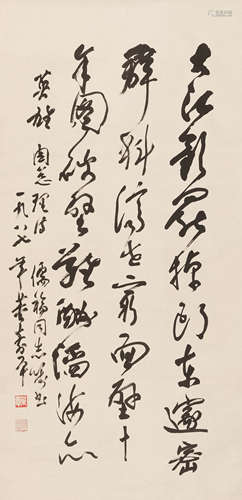 大江歌罷掉头东邃密
群科济世穷面壁十
年图破壁难酬蹈海亦
英雄 周总理诗 同志嘱书
一九八七年董寿平